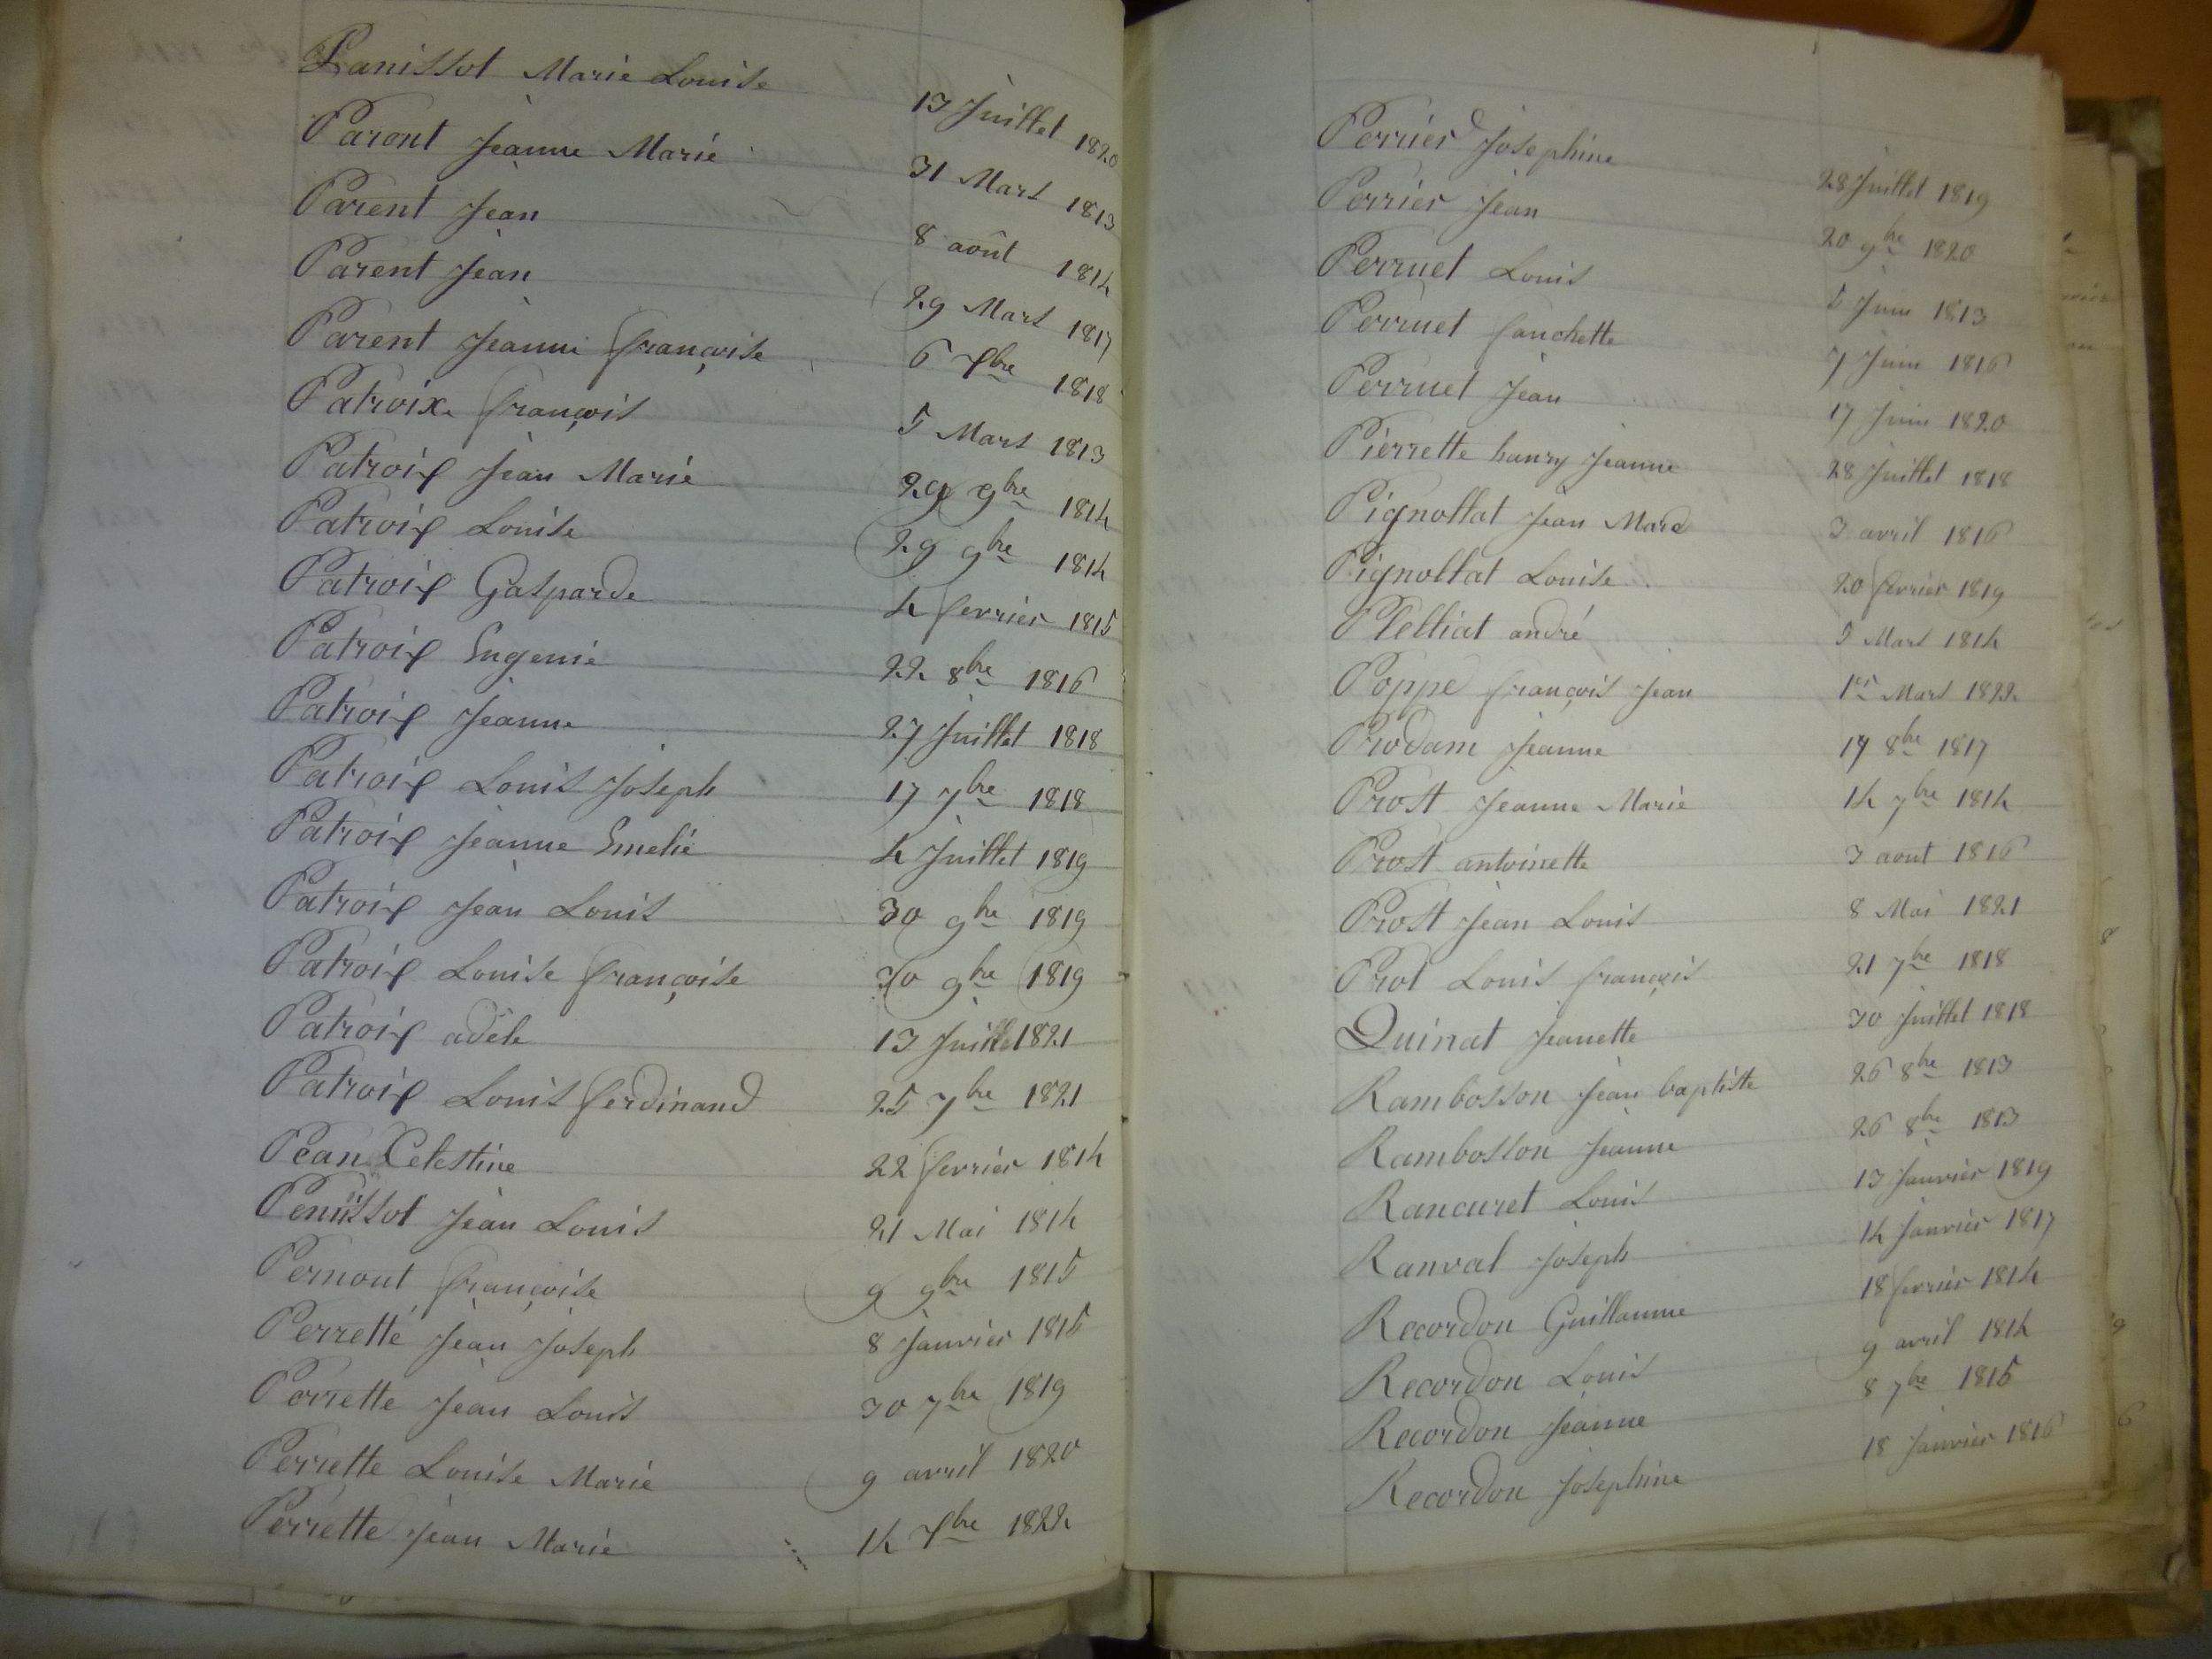 Panissot Marie Louise 13 Juillet 1820
Parent Jeanne Marie 31 Mars 1813
Parent Jean 8 août 1814
Parent Jean 29 Mars 1817
Parent Jeanne françoise 6 7bre 1818
Patroix françois 5 Mars 1813
Patroix Jean Marie 29 9bre 1814
Patroix Louise 29 9bre 1814
Patroix Gasparde 4 fevrier 1815
Patroix Eugenie 22 8bre 1816
Patroix Jeanne 27 Juillet 1818
Patroix Louis Joseph 17 7bre 1818
Patroix Jeanne Emelie 4 Juillet 1819
Patroix Jean Louis 30 9bre 1819
Patroix Louise françoise 30 9bre 1819
Patroix adele 13 Juillet 1821
Patroix Louis ferdinand 25 7bre 1821
Pean Celestine 22 fevrier 1814
Penissot Jean Louis 21 Mai 1814
Pernout françoise 9 9bre 1815
Perrette Jean Joseph 8 Janvier 1815
Perrette Jean Louis 30 7bre 1819
Perrette Louise Marie 9 avril 1820
Perrette Jean Marie 14 7bre 1822
Perrier Josephine 28 Juillet 1819
Perrier Jean 20 9bre 1820
Perruet Louis 5 Juin 1813
Perruet fanchette 7 Juin 1816
Perruet Jean 17 Juin 1820
Pierrette hanry Jeanne 28 Juillet 1818
Pignollat Jean Mard 3 avril 1816
Pignollat Louise 20 fevrier 1819
Plelliat andré 5 Mars 1814
Poppe françois Jean 1er Mars 1822
Prodam Jeanne 17 8bre 1817
Prost Jeanne Marie 14 7bre 1814
Prost antoinette 3 aout 1816
Prost Jean Louis 8 Mai 1821
Prot Louis françois 21 7bre 1818
Quinat Jeanette 30 Juillet 1818
Rambosson Jean baptiste 26 8bre 1813
Rambosson Jeanne 26 8bre 1813
Rancuret Louis 13 Janvier 1819
Ranval Joseph 14 Janvier 1817
Recordon Guillaume 18 fevrier 1814
Recordon Louis 9 avril 1814
Recordon Jeanne 8 7bre 1815
Recordon Josephine 18 Janvier 1816